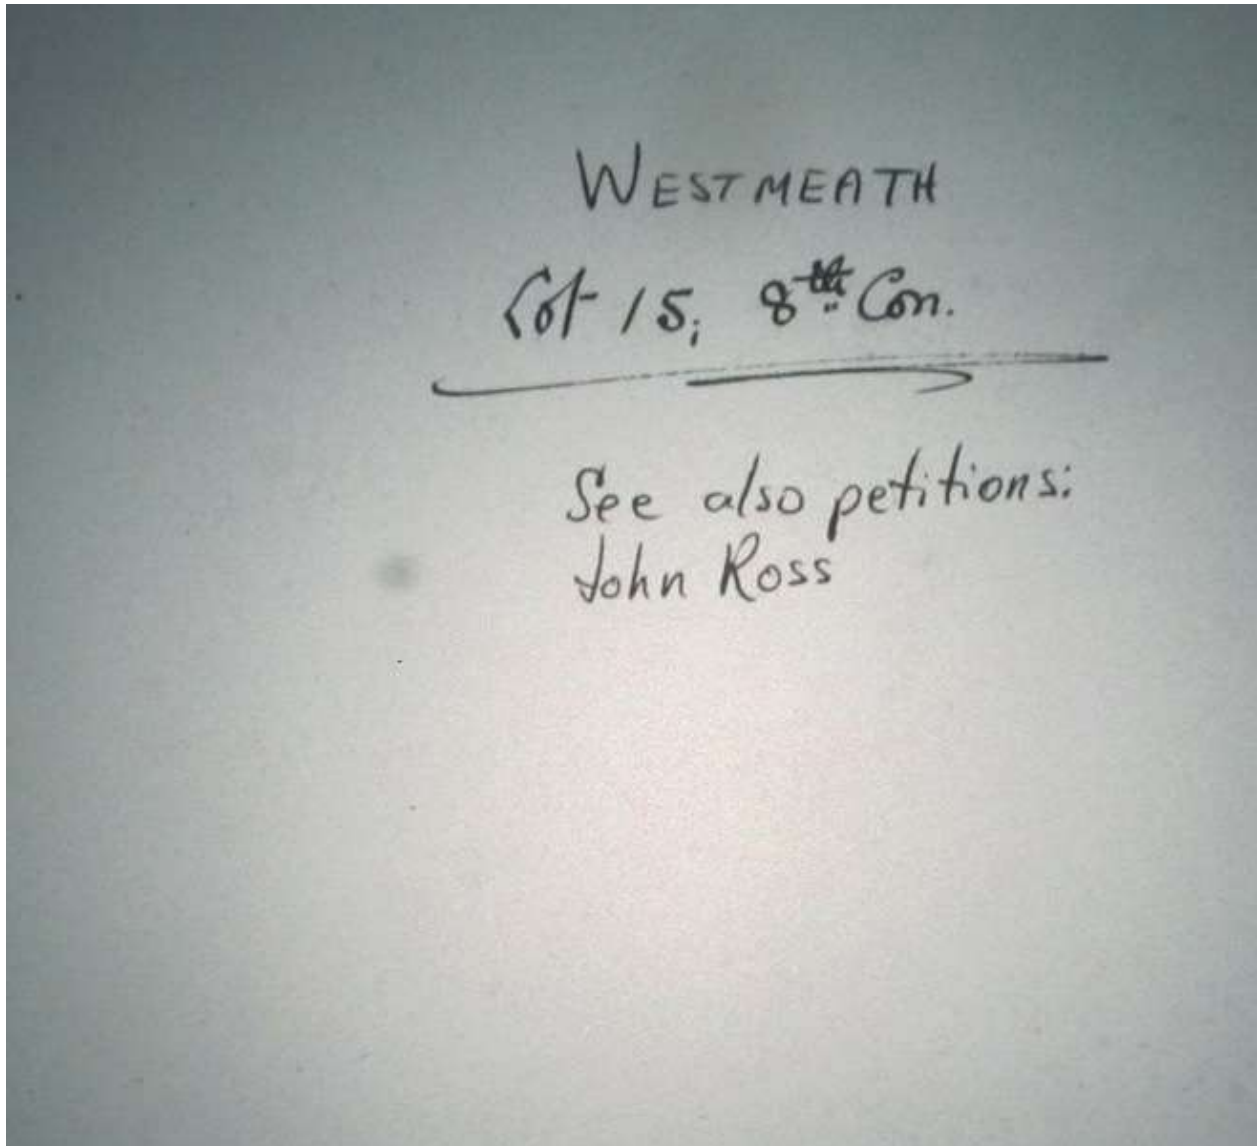 WESTMEATH
Lot 15; 8th Con.
See also petitions:
John Ross